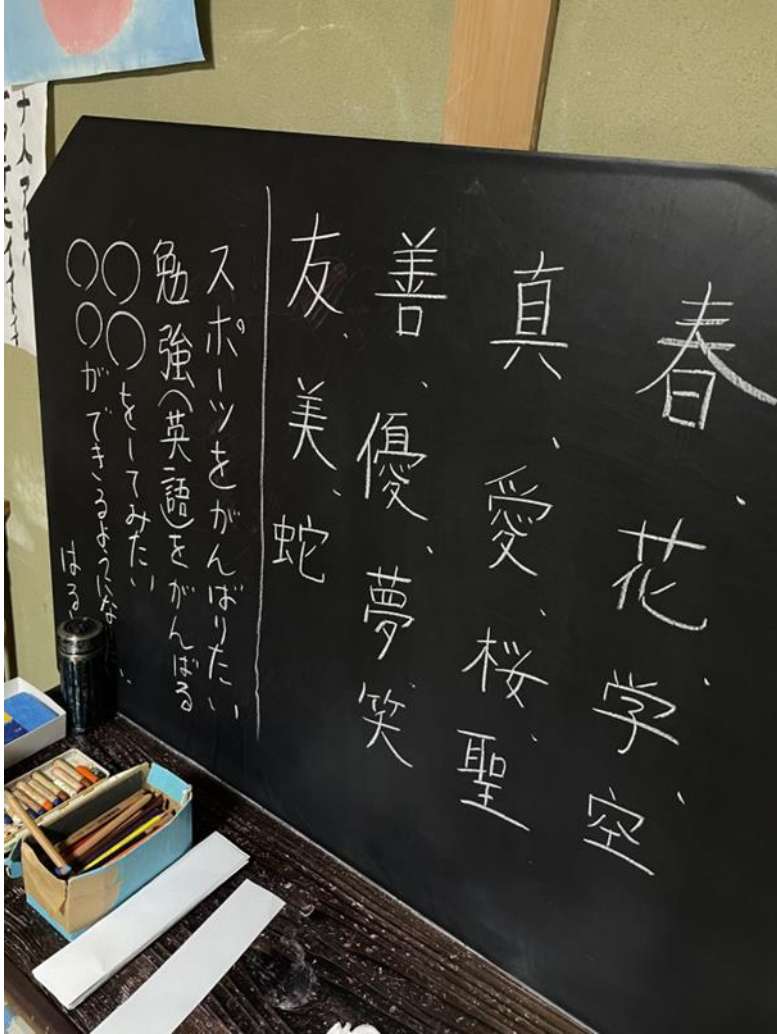 春、花、学、空
真、愛、桜、聖
善、優、夢、笑
友、美、蛇
スポーツをがんばりたい
勉強(英語をがんばる
○○をしてみたい
○○ができるようにな
はる